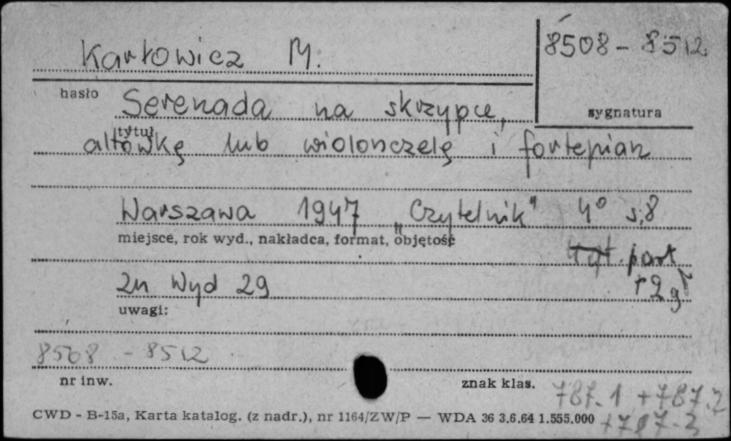 Karłowicz M.
8508 - 8512
hasło
Serenada na skrzypce,
sygnatura
tytuł
altówkę lub wiolonczelę i fortepian
Warszawa 1947 „Czytelnik" 4° s. 8
miejsce, rok wyd., nakładca, format, objętość
part
+ 2 gł
Zn Wyd 29
uwagi:
8508 - 8512
nr inw.
znak klas.
787.1 + 787.2
+ 787.3
CWD - B-15a, Karta katalog. (z nadr.), nr 1164/ZW/P — WDA 36 3.6.64 1.555.000